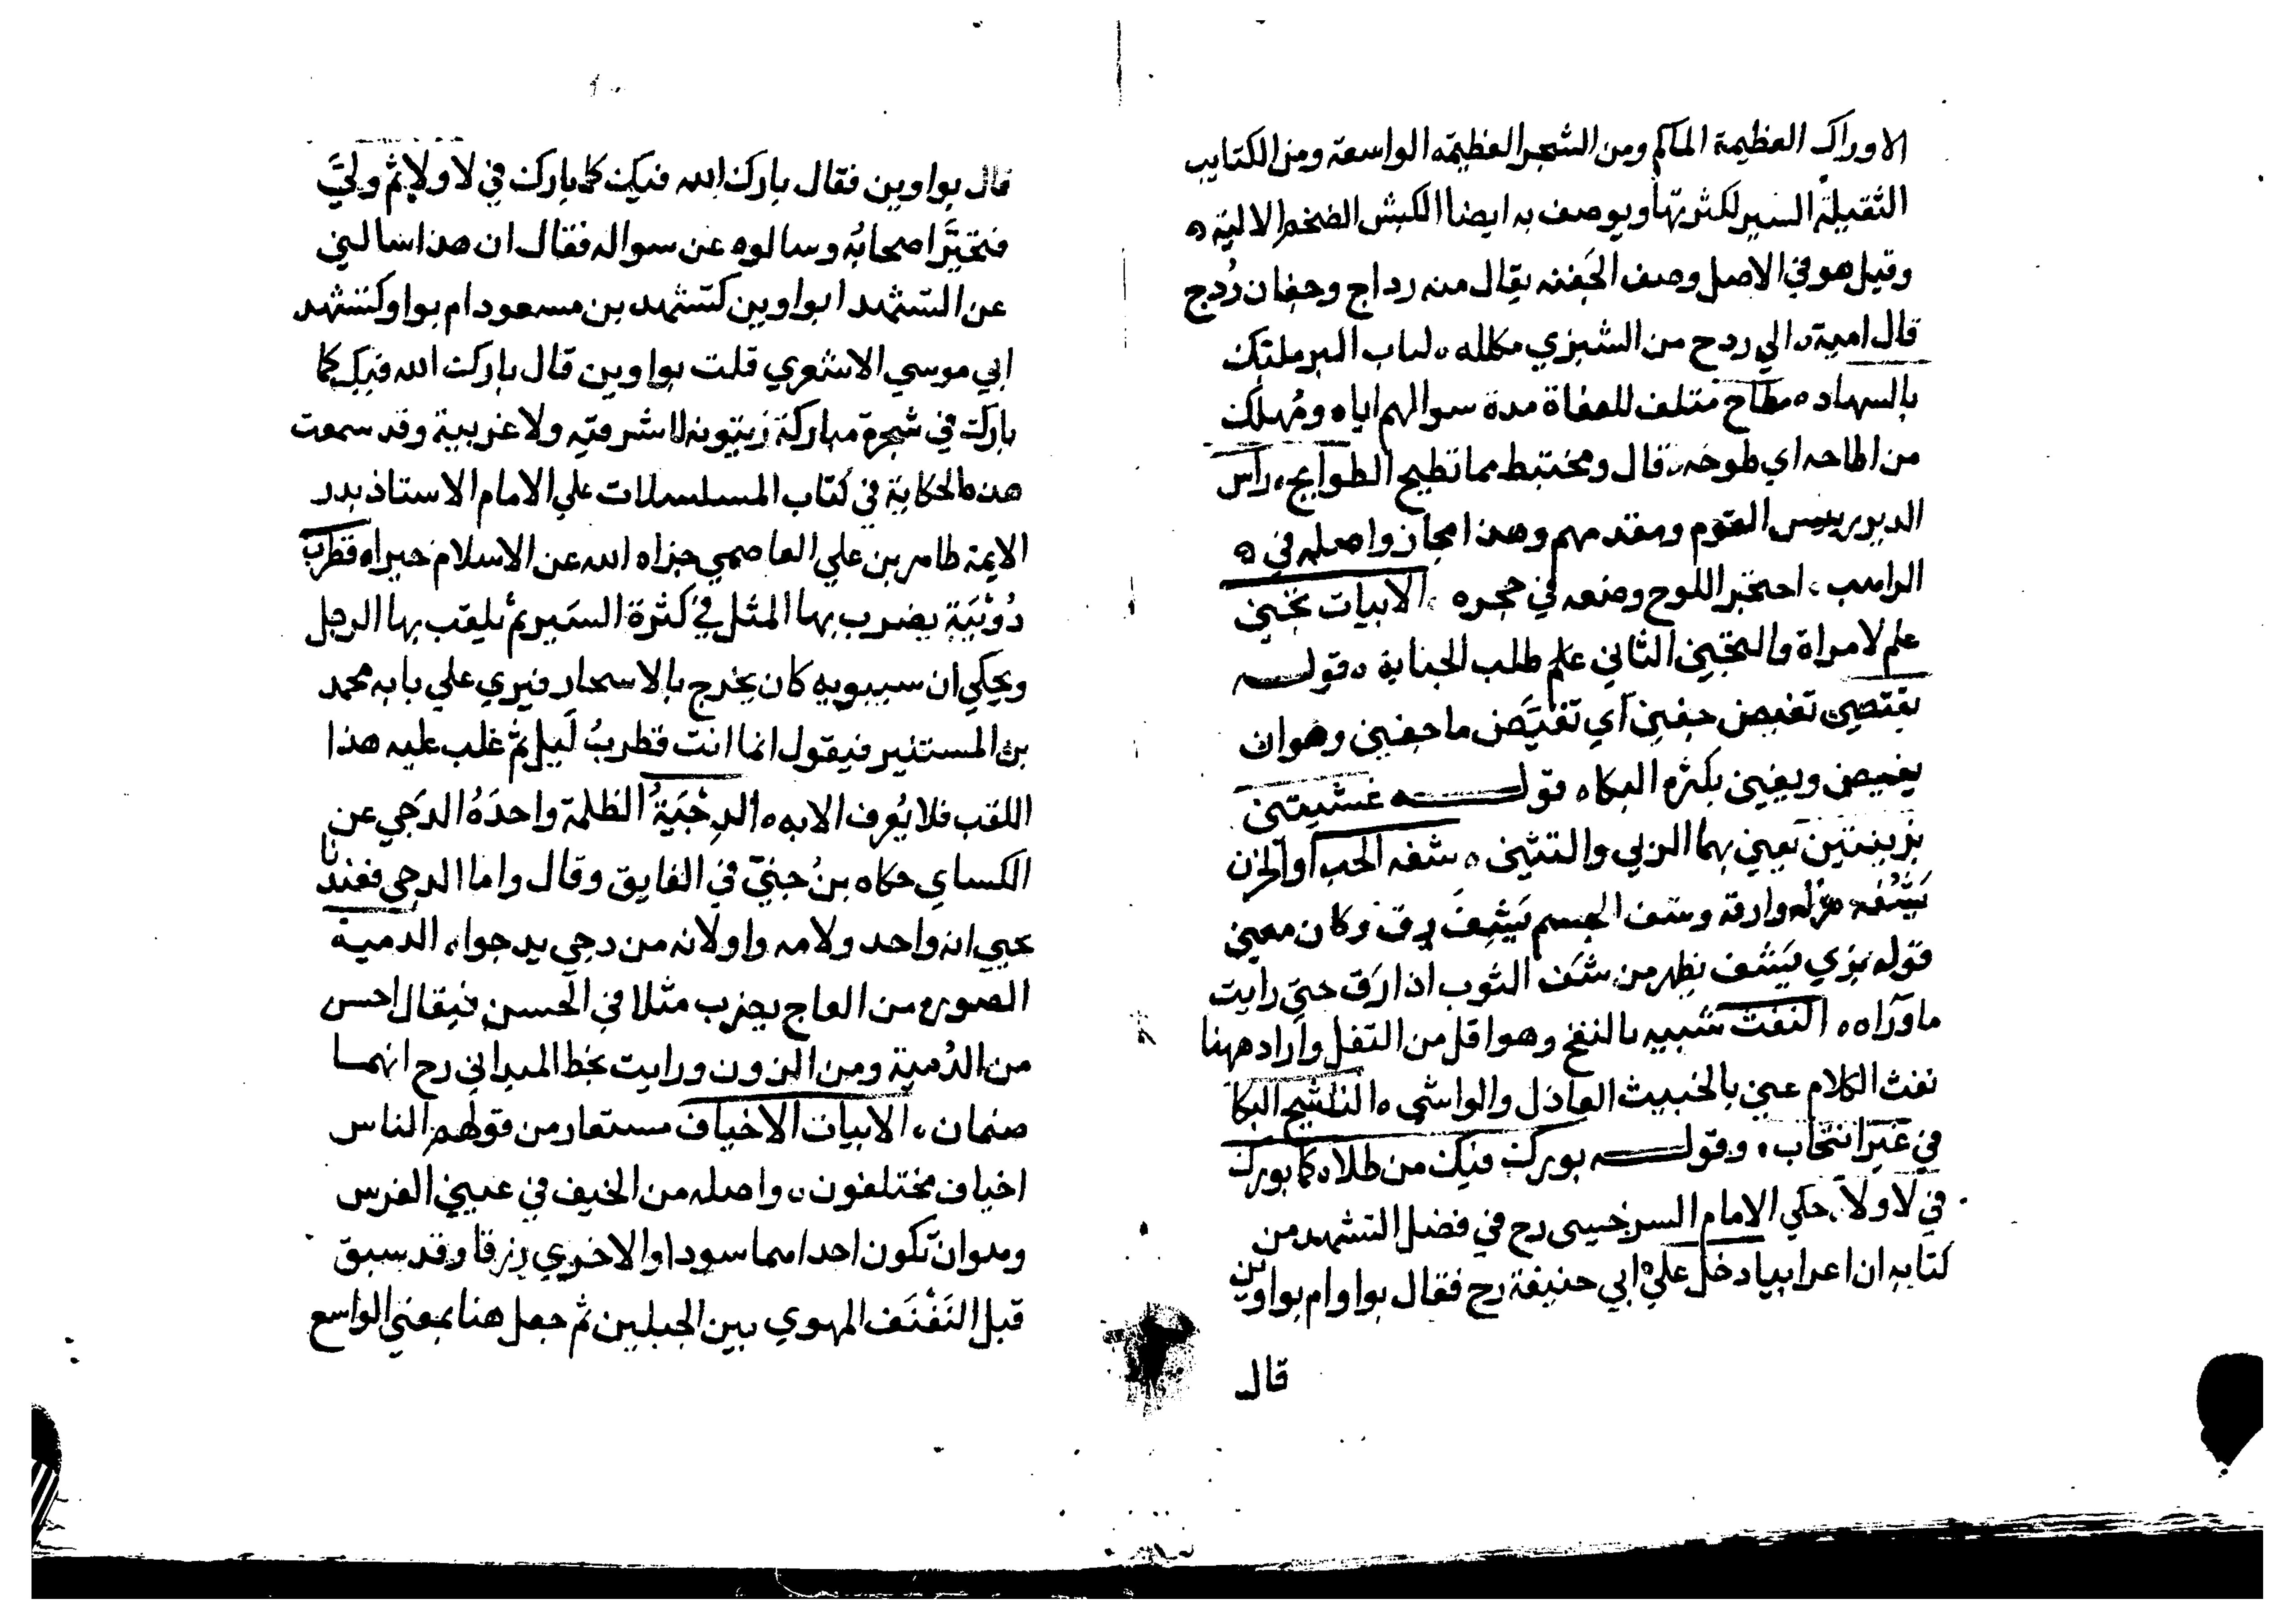 الاوراك العظيمة المآكم ومن الشجر العظيمه الواسعة ومن الكتايب
الثقيلة السير لكثرتها ويوصف به ايضا الكبش الضخم الالية ه
وقيل هو في الاصل وصف الجفنه يقال منه رداح وجفان رُدح
قال امية، الي ردح من الشيزي مكلله، لباب البر ملتبك
بالسهاد ه مطاح متلف للعفاة مدة سوالهم اياه ومُهلك
من اطاحه اي طوحه، قال ومختبط مما تطيح الطوايح، راس
الدير رييس القوم ومقدمهم وهذا مجاز واصله في ه
الراهب، احتجر اللوح وضعه في حجره، الابيات تجني
علم لامراة والتجني الثاني علم طلب الجناية، قولـــه
يقتضي تغيض جفني اي تغيّض ما جفني وهو ان
يغيض ويفيني بكثره البكاه قولـــــه غشيتني
بزينتين يعني بهما الزي والتثني ه شفه الحب او الحزن
يَشُفه هزله وارقه وشف الجسم يَشِفَ يرق وكان معني
قوله بزي يَشف يظهر من شف الثوب اذا رق حتي رايت
ما ورآه ه النفث شبيه بالنفخ وهو اقل من التفل واراد ههنا
نفث الكلام عني بالخبيث العاذل والواشي ه النشيج البكا
في غير انتحاب، وقولــــه بورك فيك من طلاه كما بورك
في لا ولا، حكي الامام السرخسي رح في فضل التشهد من
كتابه ان اعرابيا دخل علي ابي حنيفة رح فقال بواو ام بواوين
قال
قال بواوين فقال بارك الله فيك كما بارك في لا ولا ثم وليَّ
فتحيَّر اصحابُه وسالوه عن سواله فقال ان هذا سالني
عن التشهد ابواوين كتشهد بن مسعود ام بواو كتشهد
ابي موسي الاشعري قلت بواوين قال بارك الله فيك كما
بارك في شجرة مباركة زيتونه لا شرقيه ولا غربية وقد سمعت
هذه الحكاية في كتاب المسلسلات علي الامام الاستاذ بدر
الايمة طاهر بن علي العاصمي جزاه الله عن الاسلام خيراه قطرب
دُوَيْبَة يضرب بها المثل في كثرة السَير ثم يلقب بها الرجل
ويحكي ان سيبويه كان يخرج بالاسحار فيري علي بابه محمد
بن المستنير فيقول انما انت قطربُ لَيلٍ ثم غلب عليه هذا
اللقب فلا يُعرف الا به ه الدجْيَةُ الظلمة واحدَةُ الدَجي عن
الكساي حكاه بنُ جنيّ في الفايق وقال واما الدجي فعندنا
يحيي انه واحد ولامه واو لانه من دجي يدجوا، الدمية
الصوره من العاج يضرب مثلا في الحسن فيقال احسن
من الدُمية ومن الزون ورايت بخط الميداني رح انهمــا
صنمان، الابيات الاخياف مستعار من قولهم الناس
اخياف مختلفون، واصله من الخيف في عيني الفرس
وهو ان تكون احداهما سودا والاخري زرقا وقد سبق
قبل النَفْنَف المهوي بين الجبلين ثم جعل هنا بمعني الواسع